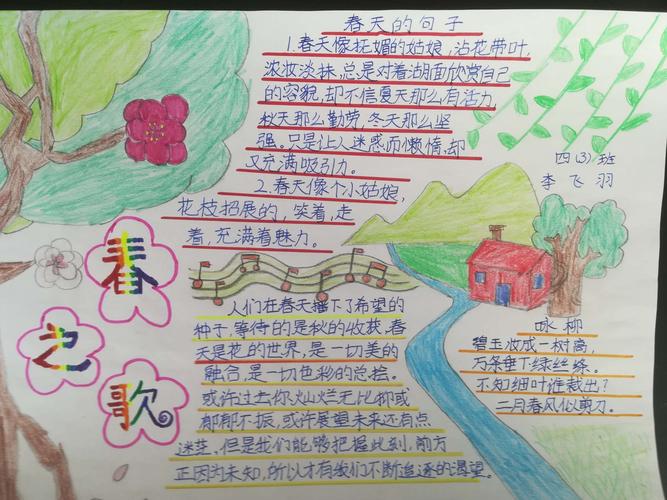 春天的句子
1.春天像抚媚的姑娘,沾花带叶,
浓妆淡抹,总是对着湖面欣赏自己
的容貌,却不信夏天那么有活力
秋天那么勤劳,冬天那么坚
强。只是让人迷惑而懒惰,却
又充满吸引力。
2.春天像个小姑娘,
花枝招展的,笑着,走
着,充满着魅力。
四(3)班
李飞羽
春之歌
人们在春天播下了希望的
种子,等待的是秋的收获,春
天是花的世界,是一切美的
融合,是一切色彩的总
或许过去你灿烂无比抑或
郁郁不振,或许展望未来还有点
迷茫,但是我们能够把握此刻,前方
正因为未知,所以才有我们不断追逐的渴望。
咏柳
碧玉妆成一树高,
万条垂下绿丝绦。
不知细叶谁裁出?
二月春风似剪刀。